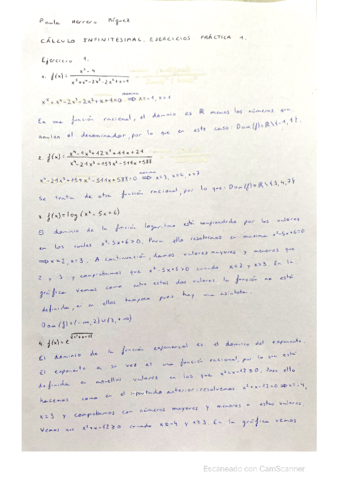 Paula Herrero Píguez
CÁLCULO INFINITESIMAL. EJERCICIOS PRÁCTICA 1.
Ejercicio 1.
1. f(x)=
En una función racional, el dominio es ℝ menos los números que
anulan el denominador, por lo que en este caso: Dom(f)=ℝ\{-1,1}.
2. f(x)=
Se trata de otra función racional, por lo que: Dom(f)=ℝ\{3,4,7}
3. f(x)=log(x²-5x+6)
El dominio de la función logaritmo está comprendido por los valores
en los cuales x²-5x+6>0. Para ello resolvemos x²-5x+6=0
⇒x=2, x=3. A continuación, damos valores mayores y menores que
2 y 3 y comprobamos que x²-5x+6>0 cuando x<2 y x>3. En la
gráfica vemos como entre estos dos valores la función no está
definida, ni en ellos tampoco pues hay una asíntota.
Dom(f)=(-∞,2)∪(3,+∞)
4. f(x)=
El dominio de la función exponencial es el dominio del exponente.
El exponente a su vez es una función, por lo que está
definida en aquellos valores en los que x²+x-12≥0. Para ello
hacemos como en el apartado anterior: resolvemos x²+x-12=0⇒x=-4,
x=3 y comprobamos con números mayores y menores a estos valores.
Vemos que x²+x-12≥0 cuando x≤-4 y x≥3. En la gráfica vemos
Escaneado con CamScanner